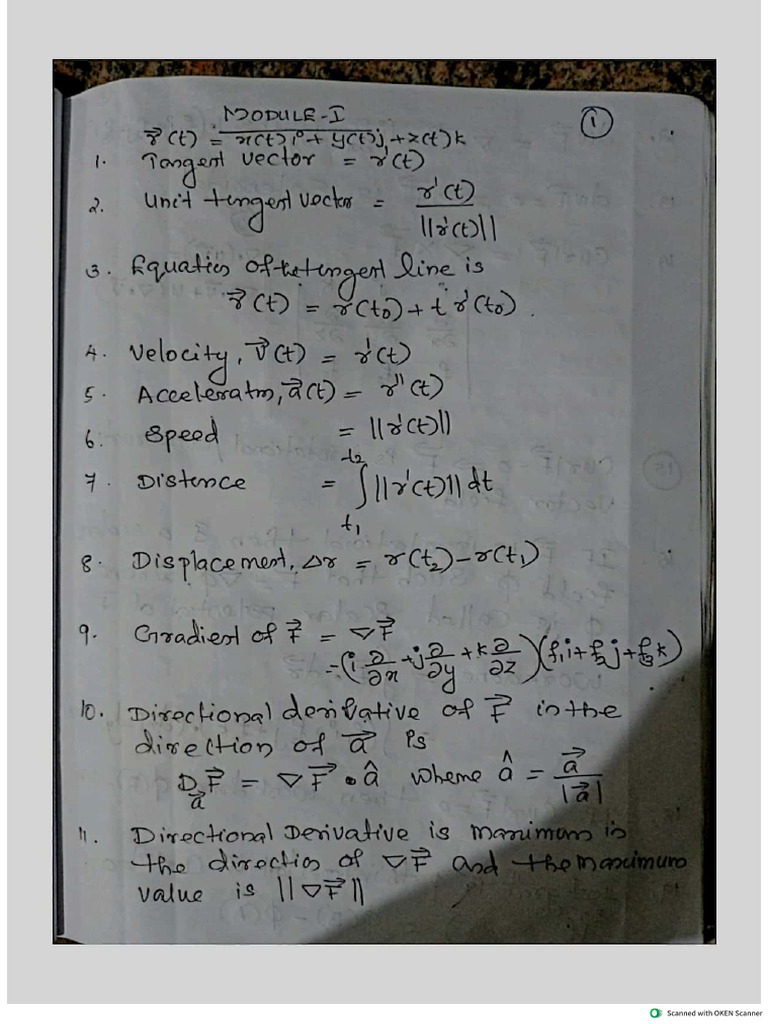 MODULE-I
①
r⃗(t) = x(t)i + y(t)j + z(t)k
1. Tangent vector = r'(t)
2. Unit tengent vector = r'(t) / ||r'(t)||
3. Equation of the tengent line is
r⃗(t) = r(t₀) + t r'(t₀).
4. Velocity, v⃗(t) = r'(t)
5. Acceleration, a⃗(t) = r''(t)
6. Speed = ||r'(t)||
7. Distence = ∫_{t₁}^{t₂} ||r'(t)|| dt
8. Displacement, Δr = r(t₂) - r(t₁)
9. Gradient of F⃗ = ∇F⃗
= (i ∂/∂x + j ∂/∂y + k ∂/∂z)(f₁i + f₂j + f₃k)
10. Directional derivative of F⃗ in the
direction of a⃗ is
D_a⃗ F⃗ = ∇F⃗ • â where â = a⃗ / |a⃗|
11. Directional Derivative is maximum in
the direction of ∇F⃗ and the maximum
value is ||∇F⃗||
Scanned with OKEN Scanner